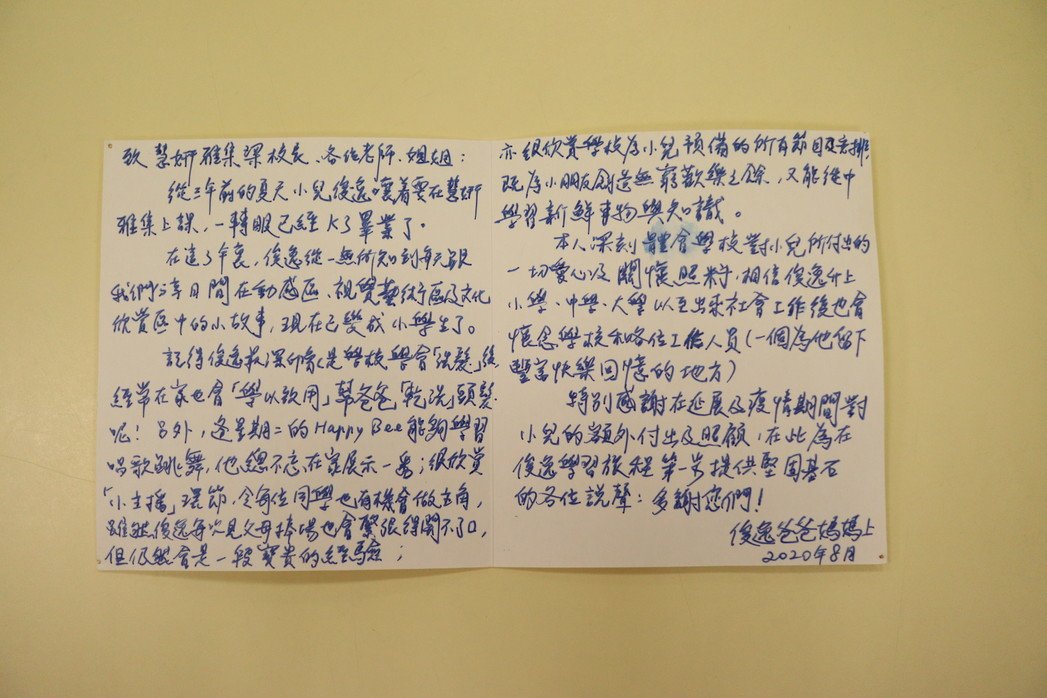 致 慧妍雅集梁校長、各位老師、姐姐：
從三年前的夏天小兒俊逸嚷着要在慧妍
雅集上課，一轉眼已經K3畢業了。
在這3年裏，俊逸從一無所知到每天跟
我們分享日間在動感區、視覺藝術區及文化
欣賞區中的小故事，現在已變成小學生了。
記得俊逸最深印象是學校學會「洗髮」後
經常在家也會「學以致用」幫爸爸「乾洗頭髮」
呢！另外，逢星期二的Happy Bee能夠學習
唱歌跳舞，他總不忘在家展示一番；很欣賞
「小主播」環節，令每位同學也有機會做主角，
雖然俊逸每次見父母捧場也會緊張得開不了口，
但仍然會是一段寶貴的經驗；
亦很欣賞學校為小兒預備的所有節目及安排，
既為小朋友創造無窮歡樂之餘，又能從中
學習新鮮事物與知識。
本人深刻體會學校對小兒所付出的
一切愛心及關懷照料，相信俊逸升上
小學、中學、大學以至出來社會工作後也會
懷念學校和各位工作人員（一個為他留下
豐富快樂回憶的地方）
特別感謝在延展及疫情期間對
小兒的額外付出及照顧，在此為在
俊逸學習旅程第一步提供堅固基石
的各位說聲：多謝您們！
俊逸爸爸媽媽上
2020年8月